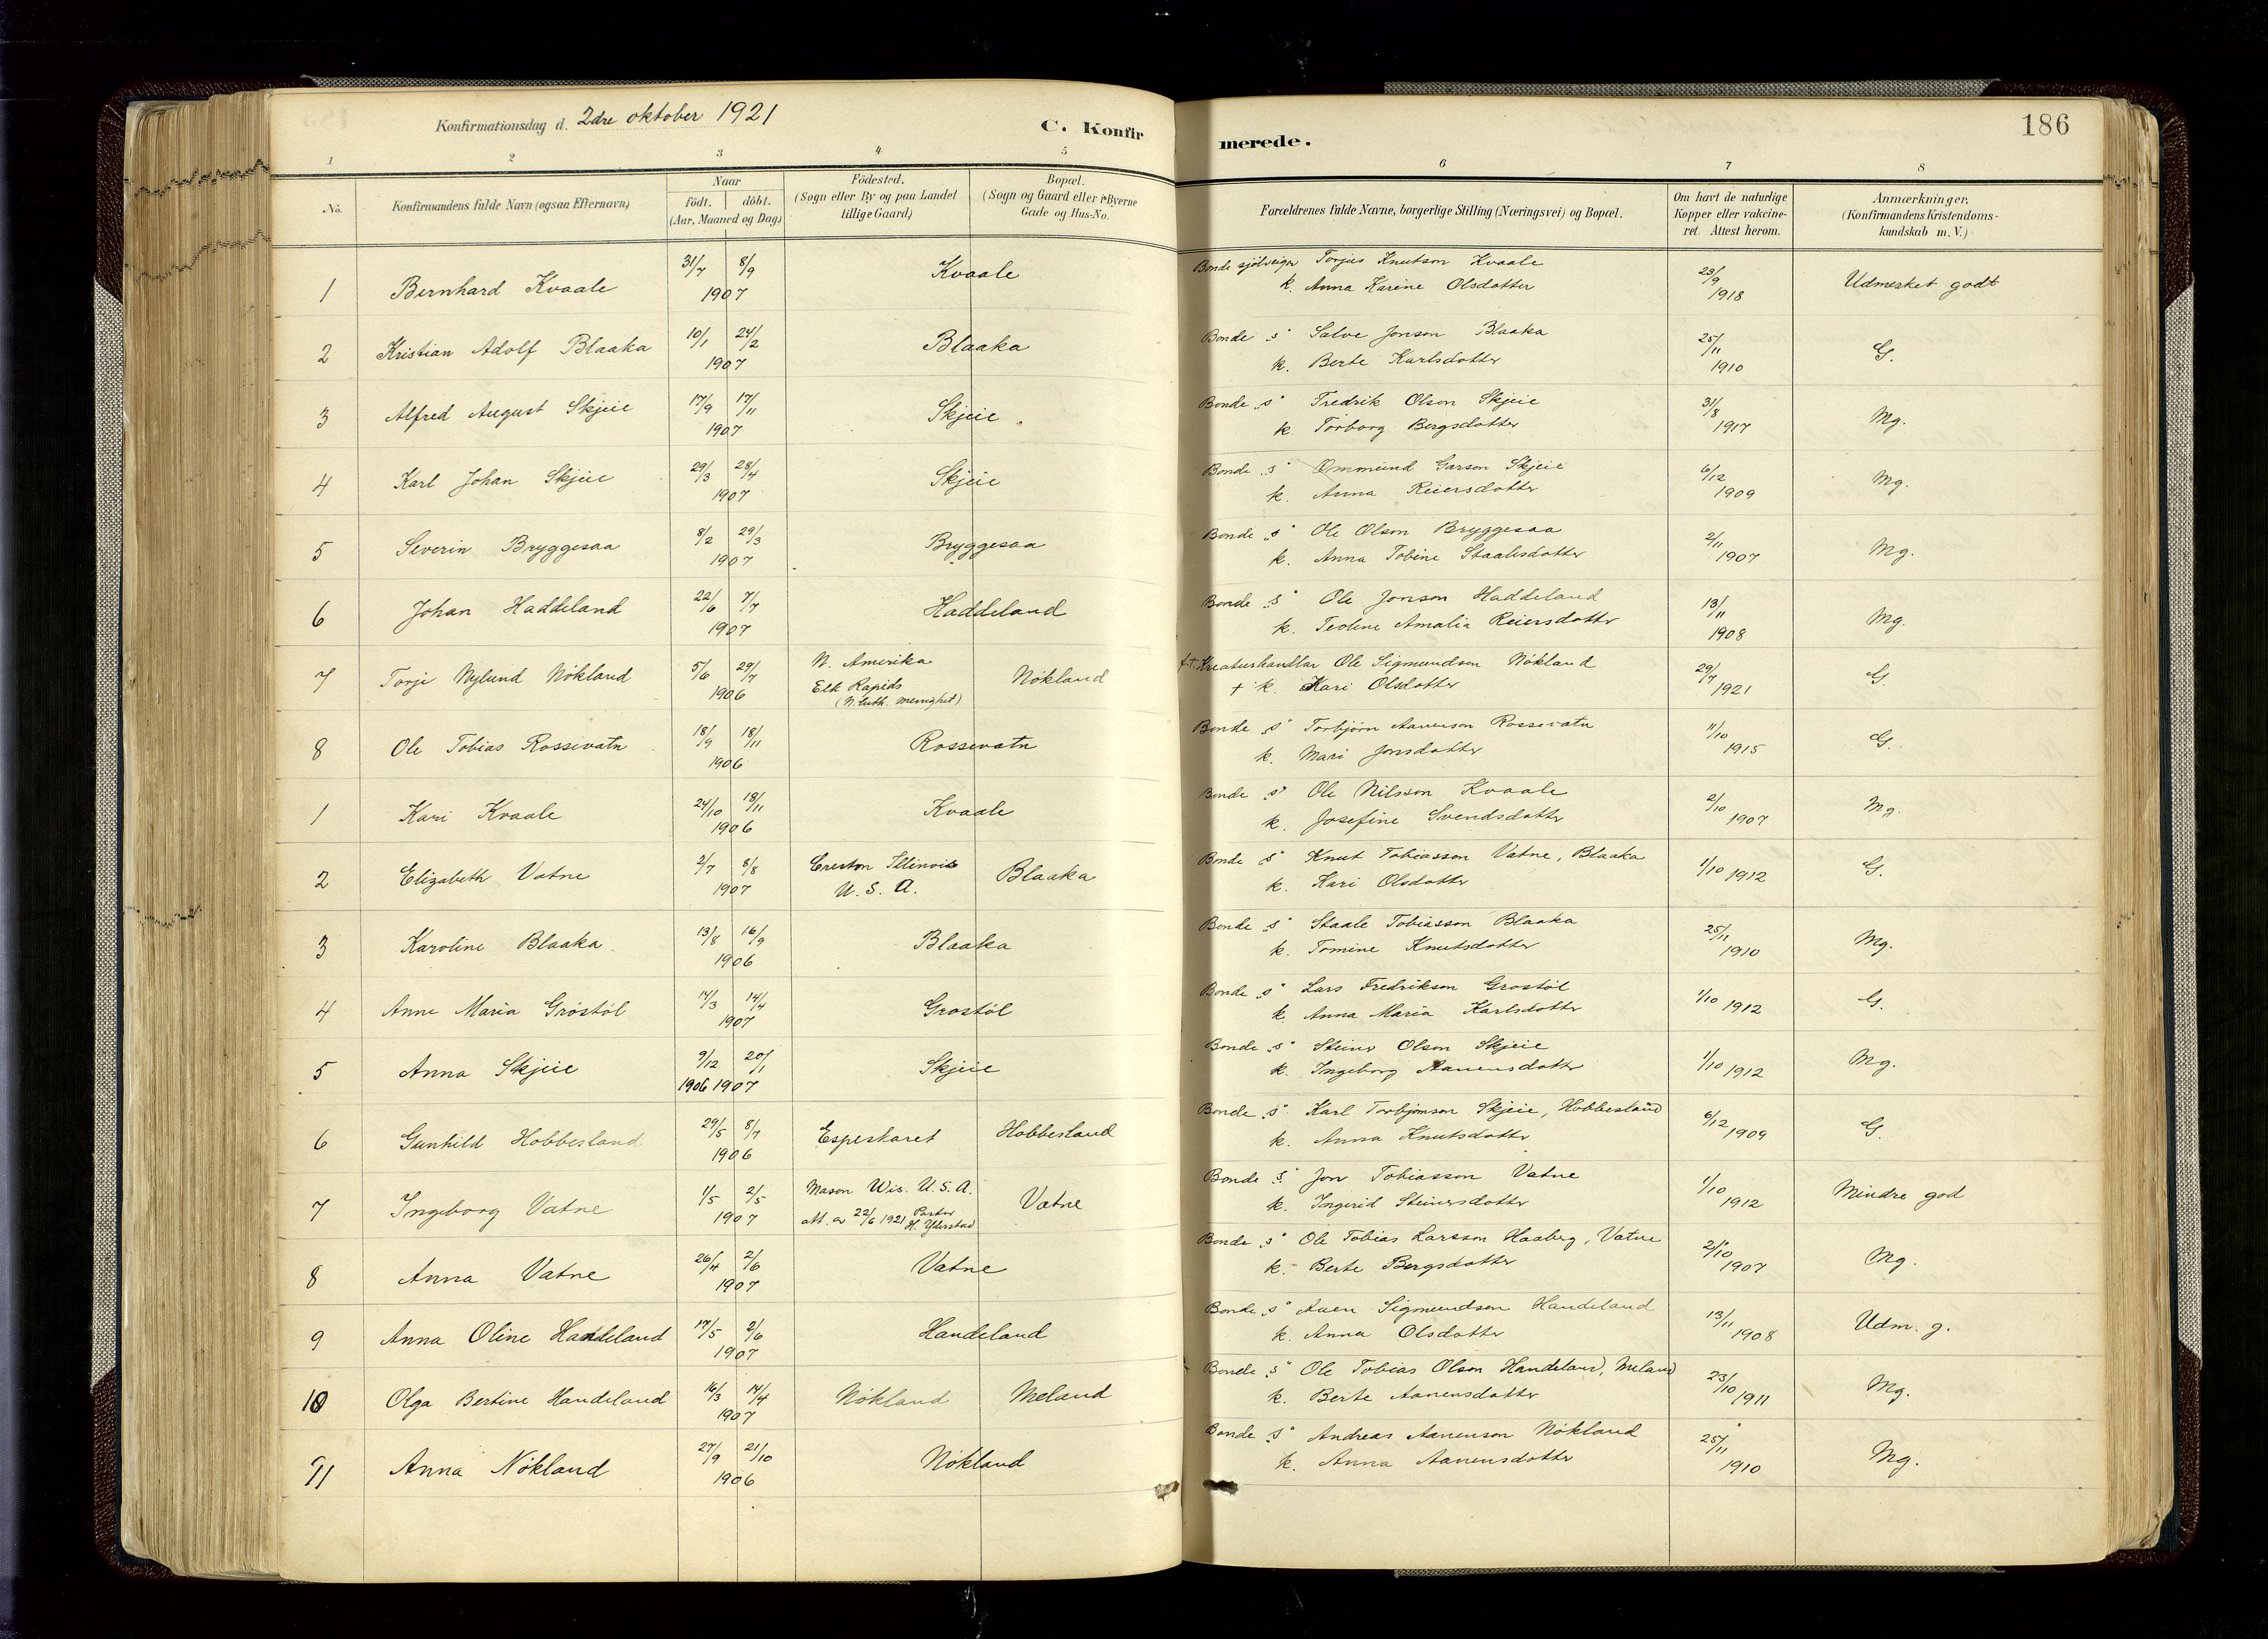 Konfirmationsdag d. 2dre oktober 1921
C. Konfirmerede.
186
1 2 3 4 5 6 7 8
No.
Konfirmandens fulde Navn (ogsaa Efternavn)
Naar
födt. döbt.
(Aar, Maaned og Dag)
Födested.
(Sogn eller By og paa Landet
tillige Gaard)
Bopæl.
(Sogn og Gaard eller i Byerne
Gade og Hus-No.
Forældrenes fulde Navne, borgerlige Stilling (Næringsvei) og Bopæl.
Om havt de naturlige
Kopper eller vakcine-
ret. Attest herom.
Anmærkninger.
(Konfirmandens Kristendoms-
kundskab m. V.)
1 Bernhard Kvaale 31/7 8/9 1907 Kvaale Bonde sjølveiger Torjus Knutson Kvaale
k. Anna Karine Olsdotter 23/9 1918 Udmerket godt
2 Kristian Adolf Blaaka 10/1 24/2 1907 Blaaka Bonde „s" Salve Jonson Blaaka
k. Berte Karlsdotter 25/11 1910 G.
3 Alfred August Skjeie 17/9 17/11 1907 Skjeie Bonde „s" Fredrik Olson Skjeie
k. Torborg Bergsdotter 31/8 1917 Mg.
4 Karl Johan Skjeie 29/3 28/4 1907 Skjeie Bonde „s" Ommund Garson Skjeie
k. Anna Reiersdotter 6/12 1909 Mg.
5 Severin Bryggesaa 8/2 29/3 1907 Bryggesaa Bonde „s" Ole Olson Bryggesaa
k. Anna Tobine Staalesdotter 2/11 1907 Mg.
6 Johan Haddeland 22/6 7/7 1907 Haddeland Bonde „s" Ole Jonson Haddeland
k. Teoline Amalia Reiersdotter 13/11 1908 Mg.
7 Torje Nylund Nökland 5/6 29/7 1906 N. Amerika
Elk Rapids
(N. luth. menighet) Nökland f.t. Kreaturhandlar Ole Sigmundson Nökland
+ k. Kari Olsdotter 29/7 1921 G.
8 Ole Tobias Rossevatn 18/9 18/11 1906 Rossevatn Bonde „s" Torbjörn Aanenson Rossevatn
k. Mari Jonsdotter 11/10 1915 G.
1 Kari Kvaale 24/10 18/11 1906 Kvaale Bonde „s" Ole Nilsson Kvaale
k. Josefine Svendsdotter 2/10 1907 Mg.
2 Elizabeth Vatne 2/7 8/8 1907 Creston Illinois
U. S. A. Blaaka Bonde „s" Knut Tobiasson Vatne, Blaaka
k. Kari Olsdotter 1/10 1912 G.
3 Karoline Blaaka 13/8 16/9 1906 Blaaka Bonde „s" Staale Tobiasson Blaaka
k. Tomine Knutsdotter 25/11 1910 Mg.
4 Anne Maria Gröstöl 14/3 14/4 1907 Grostöl Bonde „s" Lars Fredrikson Grostöl
k. Anna Maria Karlsdotter 1/10 1912 G.
5 Anna Skjeie 9/12 20/1 1906 1907 Skjeie Bonde „s" Steiner Olson Skjeie
k. Ingeborg Aanensdotter 1/10 1912 Mg.
6 Gunhild Hobbesland 29/5 8/7 1906 Espeskaret Hobbesland Bonde „s" Karl Torbjörnson Skjeie, Hobbesland
k. Anna Knutsdotter 6/12 1909 G.
7 Ingeborg Vatne 1/5 2/5 1907 Mason Wis. U. S. A.
att. av 22/6 1921 Pastor Vatne Bonde „s" Jon Tobiasson Vatne
k. Ingerid Steinersdotter 1/10 1912 Mindre god
8 Anna Vatne 26/4 2/6 1907 Vatne Bonde „s" Ole Tobias Larsson Haaberg, Vatne
k. Berte Bergsdotter 2/10 1907 Mg.
9 Anna Oline Handeland 17/5 2/6 1907 Handeland Bonde „s" Aaen Sigmundson Handeland
k. Anna Olsdotter 13/11 1908 Udm. g.
10 Olga Bertine Handeland 16/3 14/4 1907 Nökland Meland Bonde „s" Ole Tobias Olson Handeland, Meland
k. Berte Aanensdotter 23/10 1911 Mg.
11 Anna Nökland 27/9 21/10 1906 Nökland Bonde „s" Andreas Aanenson Nökland
k. Anna Aanensdotter 25/11 1910 Mg.